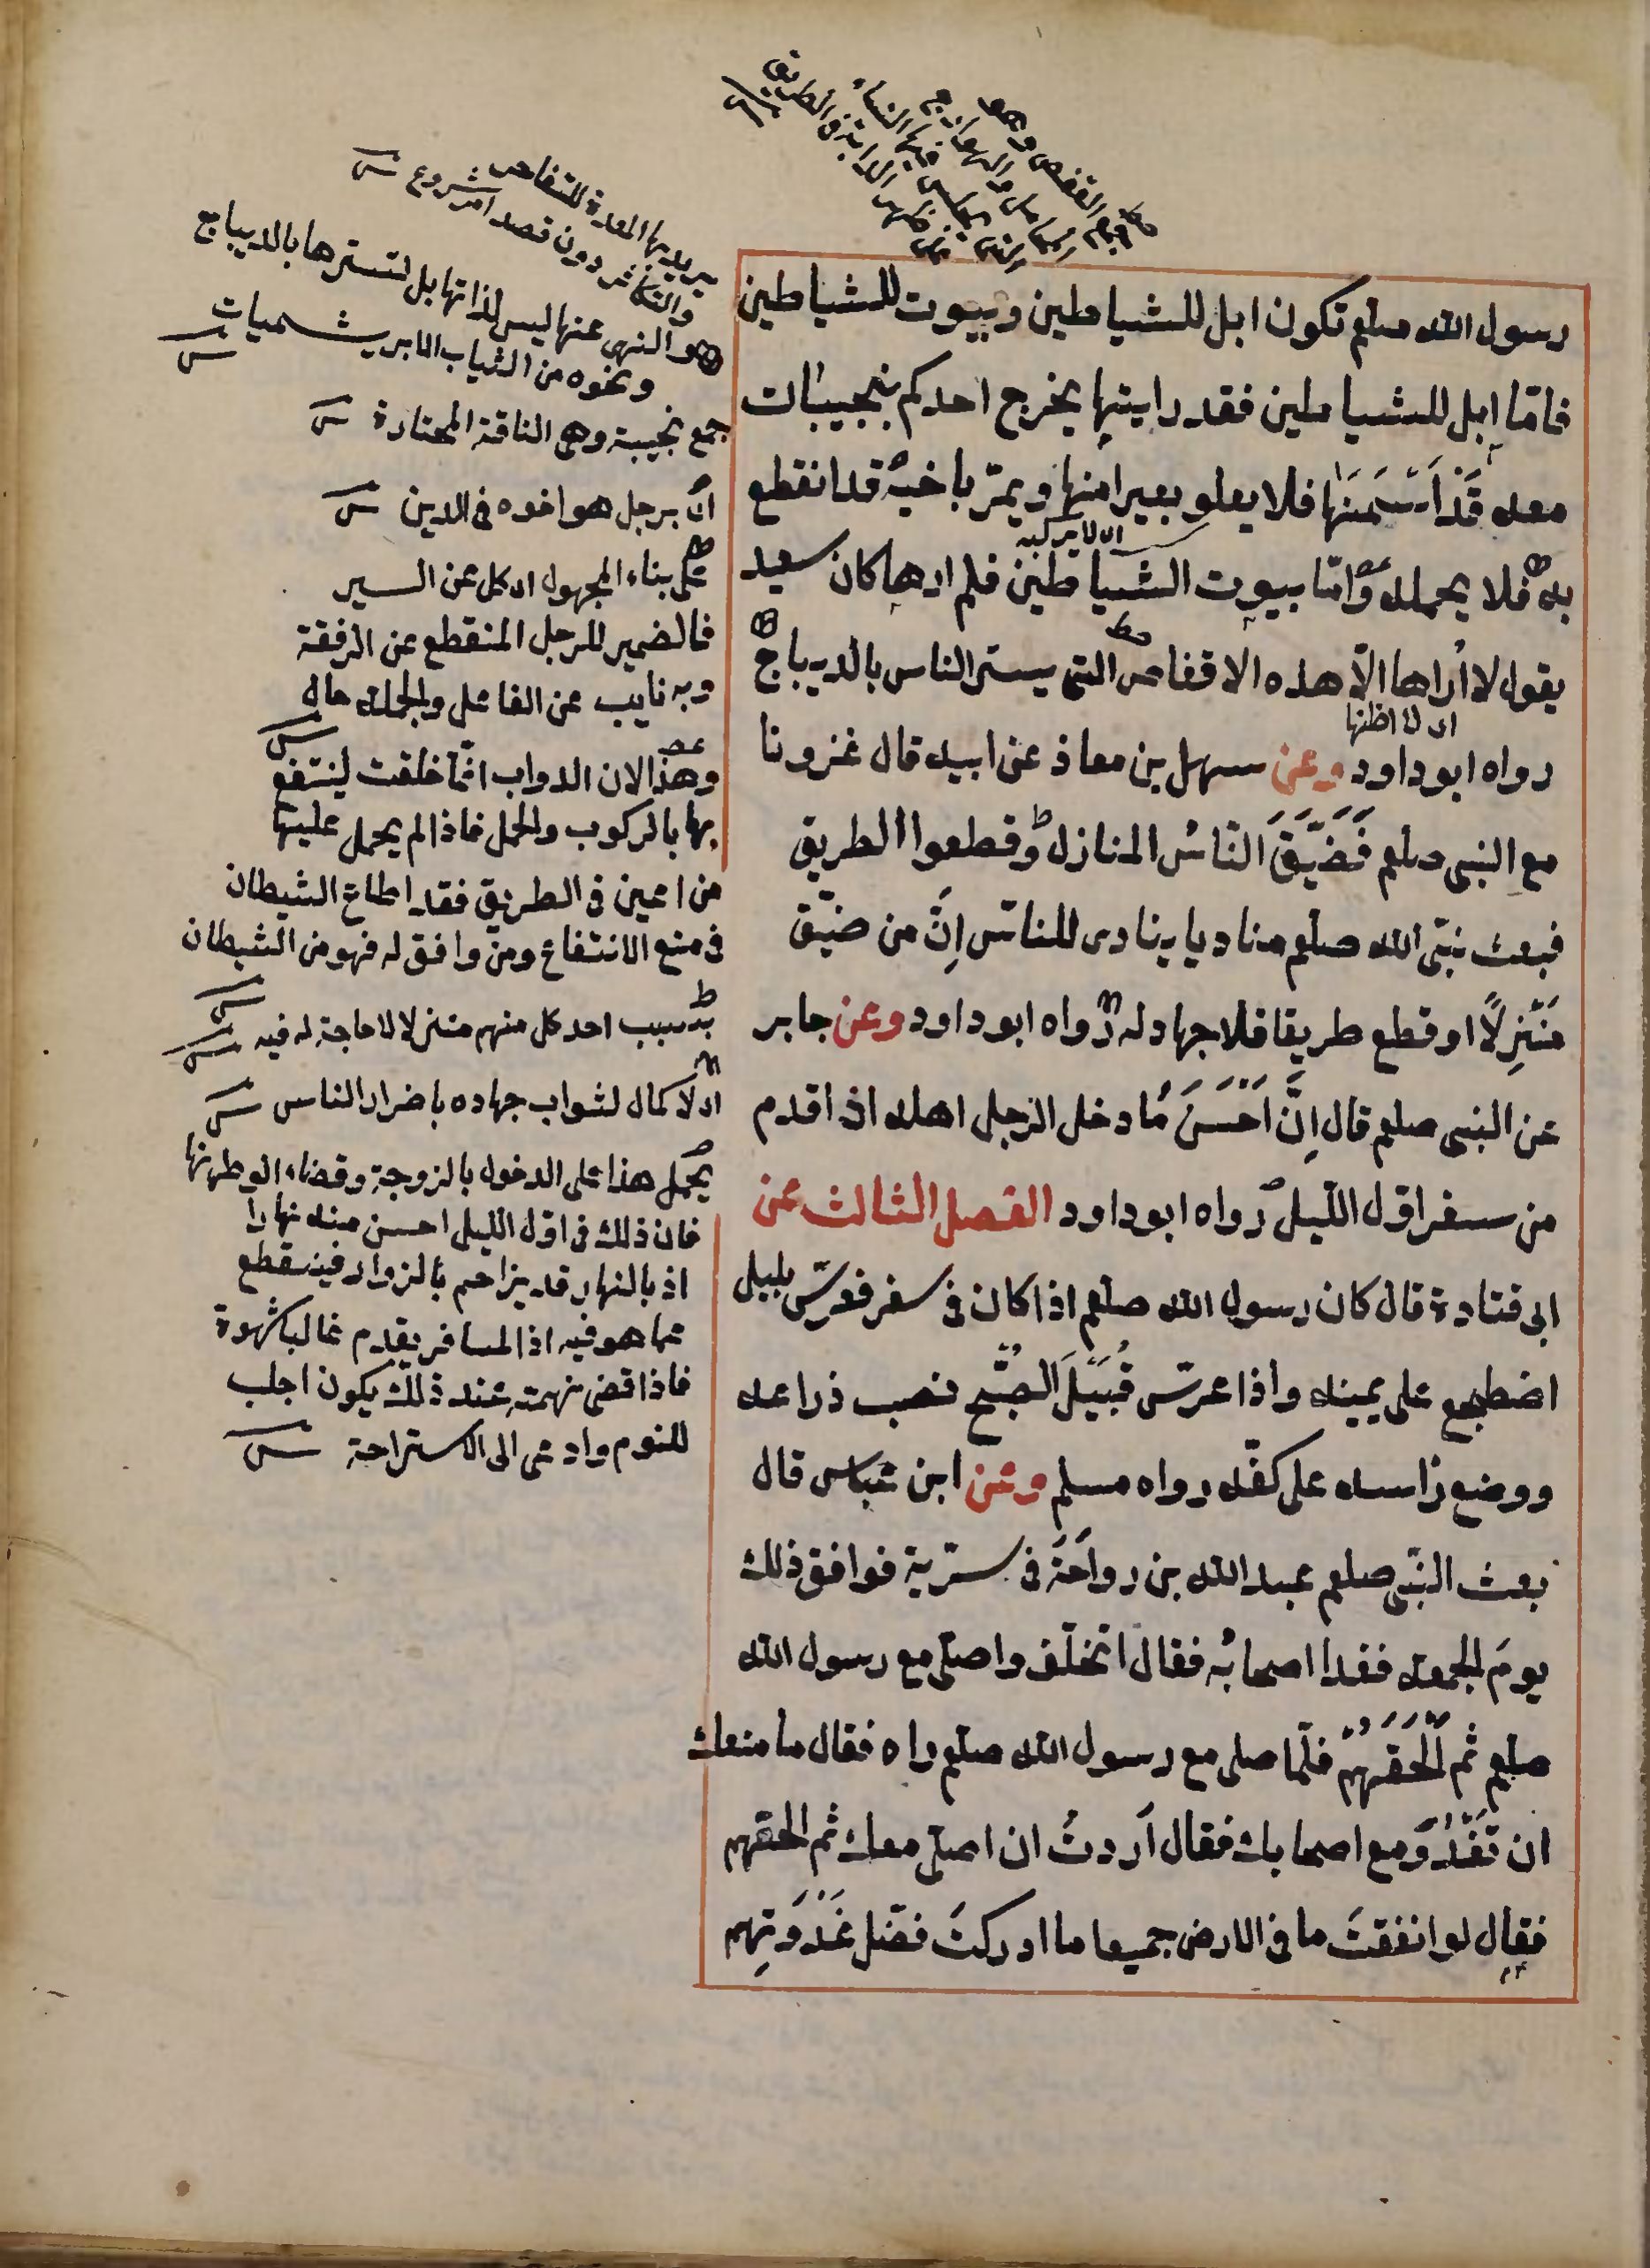 رسول الله صلعم تكون ابل للشياطين وبيوت للشياطين
فامّا ابل للشياطين فقد رايتها يخرج احدكم بنجيبات
معه قَدْ اَسْمَنَهَا فلا يعلو بعيرا منها ويمرّ باخيه قد انقطع
اى لا يركبه
به فلا يحمله وامّا بيوت الشياطين فلم ارها كان سعيد
يقول لا اُراها الّا هذه الاقفاص التى يستر الناس بالديباج
اى لا اظنها
رواه ابو داود وعن سهل بن معاذ عن ابيه قال غزونا
مع النبى صلعم فَضَيَّقَ النّاسُ المنازل وقطعوا الطريق
فبعث نبىّ الله صلعم مناديا ينادى للناس اِنَّ من ضيّق
مَنْزِلًا او قطع طريقا فلا جهاد له رواه ابو داود وعن جابر
عن النبى صلعم قال اِنَّ اَحْسَنَ مَا دخل الرجل اهله اذا قدم
من سفر اوّل اللّيل رواه ابو داود الفصل الثالث عن
ابى قتادة قال كان رسول الله صلعم اذا كان فى سفر فعرّس بليل
اضطجع على يمينه واذا عرّس قُبَيْلَ الصُّبْح نصب ذراعه
ووضع راسه على كفّه رواه مسلم وعن ابن عباس قال
بعث النبّى صلعم عبد الله بن رواحَةَ فى سريّة فوافق ذلك
يومَ الجمعه فغدا اصحابُه فقال اتخلّف واصلّى مع رسول الله
صلعم ثم اَلْحَقُهُمْ فلمّا صلى مع رسول الله صلعم راه فقال ما منعك
ان تَغْدُوَ مع اصحابك فقال اردتُ ان اصلّى معك ثم الحقهم
فقال لو انفقتَ ما فى الارض جميعا ما ادركتَ فضل غَدْوَتِهم
يريد بها المعدة للتفاخر
والتكاثر دون قصد امر مشروع
والنهى عنها ليس لذاتها بل لتسترها بالديباج
ونحوه من الثياب الابريشميات
جمع نجيبة وهى الناقة المختارة
اى برجل هو اخوه فى الدين
على بناء المجهول اى كل عن السير
فالضمير للرجل المنقطع عن الرفقة
وبه نايب عن الفاعل والجملة حال
وهذا لان الدواب انما خلقت لينتفع
بها بالركوب والحمل فاذا لم يحمل عليها
من اعيى فى الطريق فقد اطاع الشيطان
فى منع الانتفاع ومن وافق له فهو من الشيطان
بسبب احد كل منهم منزلا لا حاجة له فيه
اى لا كمال لثواب جهاده باضرار الناس
يحمل هذا على الدخول بالزوجة وقضاء الوطر منها
فان ذلك فى اوّل الليل احسن منه نهارا
اذ بالنهار قد يزاحم بالزوار فينقطع
عما هو فيه اذ المسافر يقدم غالبا بشهوة
فاذا قضى نهمته عند ذلك يكون اجلب
للنوم وادعى الى الاستراحة